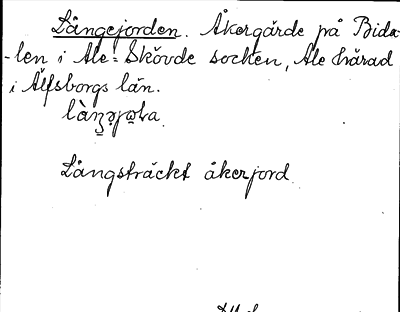 Långejorden. Åkergärde på Bida-
-len i Ale-Skövde socken, Ale härad
i Älfsborgs län.
Långsträckt åkerjord.